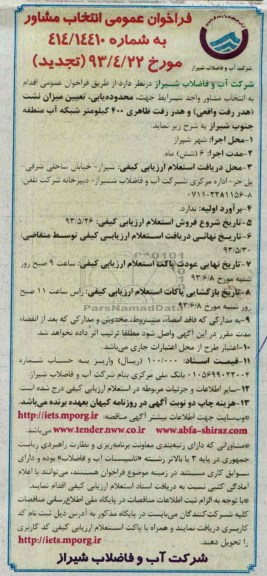 فراخوان عمومی انتخاب مشاور
به شماره ۴۱۴/۱۴۴۱۰
مورخ ۹۳/۴/۲۲ (تجدید)
شرکت آب و فاضلاب شیراز
شرکت آب و فاضلاب شیراز درنظر دارد از طریق فراخوان عمومی
به انتخاب مشاور واجد شرایط جهت، محدوده‌یابی، تعیین میزان نشت
(هدر رفت واقعی) و هدر رفت ظاهری ۴۰۰ کیلومتر شبکه آب منطقه
جنوب شیراز به شرح زیر نماید.
۱-محل اجرا: شهر شیراز
۲-مدت اجرا: ۶ (شش) ماه
۳-محل دریافت استعلام ارزیابی کیفی: شیراز- خیابان ساحلی شرقی-
پل حر- اداره مرکزی شرکت آب و فاضلاب شیراز- دبیرخانه شرکت تلفن:
۰۷۱۱-۲۲۸۱۱۵۶-۸
۴-برآورد اولیه: ندارد.
۵-تاریخ شروع فروش استعلام ارزیابی کیفی: ۹۳/۵/۲۶
۶-تاریخ نهائی دریافت استعلام ارزیابی کیفی توسط متقاضی:
۹۳/۵/۳۰
۷-تاریخ نهایی عودت پاکت استعلام ارزیابی کیفی: ساعت ۹ صبح روز
شنبه مورخ ۹۳/۶/۸
۸-تاریخ بازگشایی پاکات استعلام ارزیابی کیفی: رأس ساعت ۱۱ صبح
روز شنبه مورخ ۹۳/۶/۸
۹-به مدارکی که فاقد امضاء، مشروط، مخدوش و مدارکی که بعد از انقضاء
مدت مقرر در این آگهی واصل شود مطلقا ترتیب اثر داده نخواهد شد.
۱۰-اعتبار طرح از محل اعتبارات جاری می‌باشد.
۱۱-قیمت اسناد: ۱۰۰/۰۰۰ (ریال) واریز به حساب شماره
۰۱۰۵۶۹۹۰۲۳۰۰۴ بانک ملی مرکزی بنام شرکت آب و فاضلاب شیراز.
۱۲-سایر اطلاعات و جزئیات مربوطه در استعلام ارزیابی کیفی درج شده است.
۱۳-هزینه چاپ دو نوبت آگهی در روزنامه کیهان بعهده برنده می‌باشد.
*وب‌سایت جهت اطلاعات بیشتر آگهی مناقصه: http://iets.mporg.ir
www.abfa-shiraz.com و www.tender.nww.co.ir می‌باشد.
*مشاورانی که دارای رتبه‌بندی معاونت برنامه‌ریزی و نظارت راهبردی ریاست
جمهوری در پایه ۳ یا بالاتر رشته «تاسیسات آب و فاضلاب» بوده و دارای
سوابق کاری مستند در زمینه موضوع فراخوان هستند، می‌توانند با اعلام
آمادگی کتبی نسبت به دریافت اسناد استعلام ارزیابی کیفی اقدام نمایند.
*با توجه به الزام ثبت اطلاعات مناقصات در پایگاه ملی اطلاع‌رسانی مناقصات
کلیه شرکت‌کنندگان می‌بایست در پایگاه مذکور به آدرس ذیل ثبت نام کد
کاربری دریافت نمایند و همراه با پاکت استعلام ارزیابی کیفی کد کاربری
را تحویل دهند. http://iets.mporg.ir
شرکت آب و فاضلاب شیراز